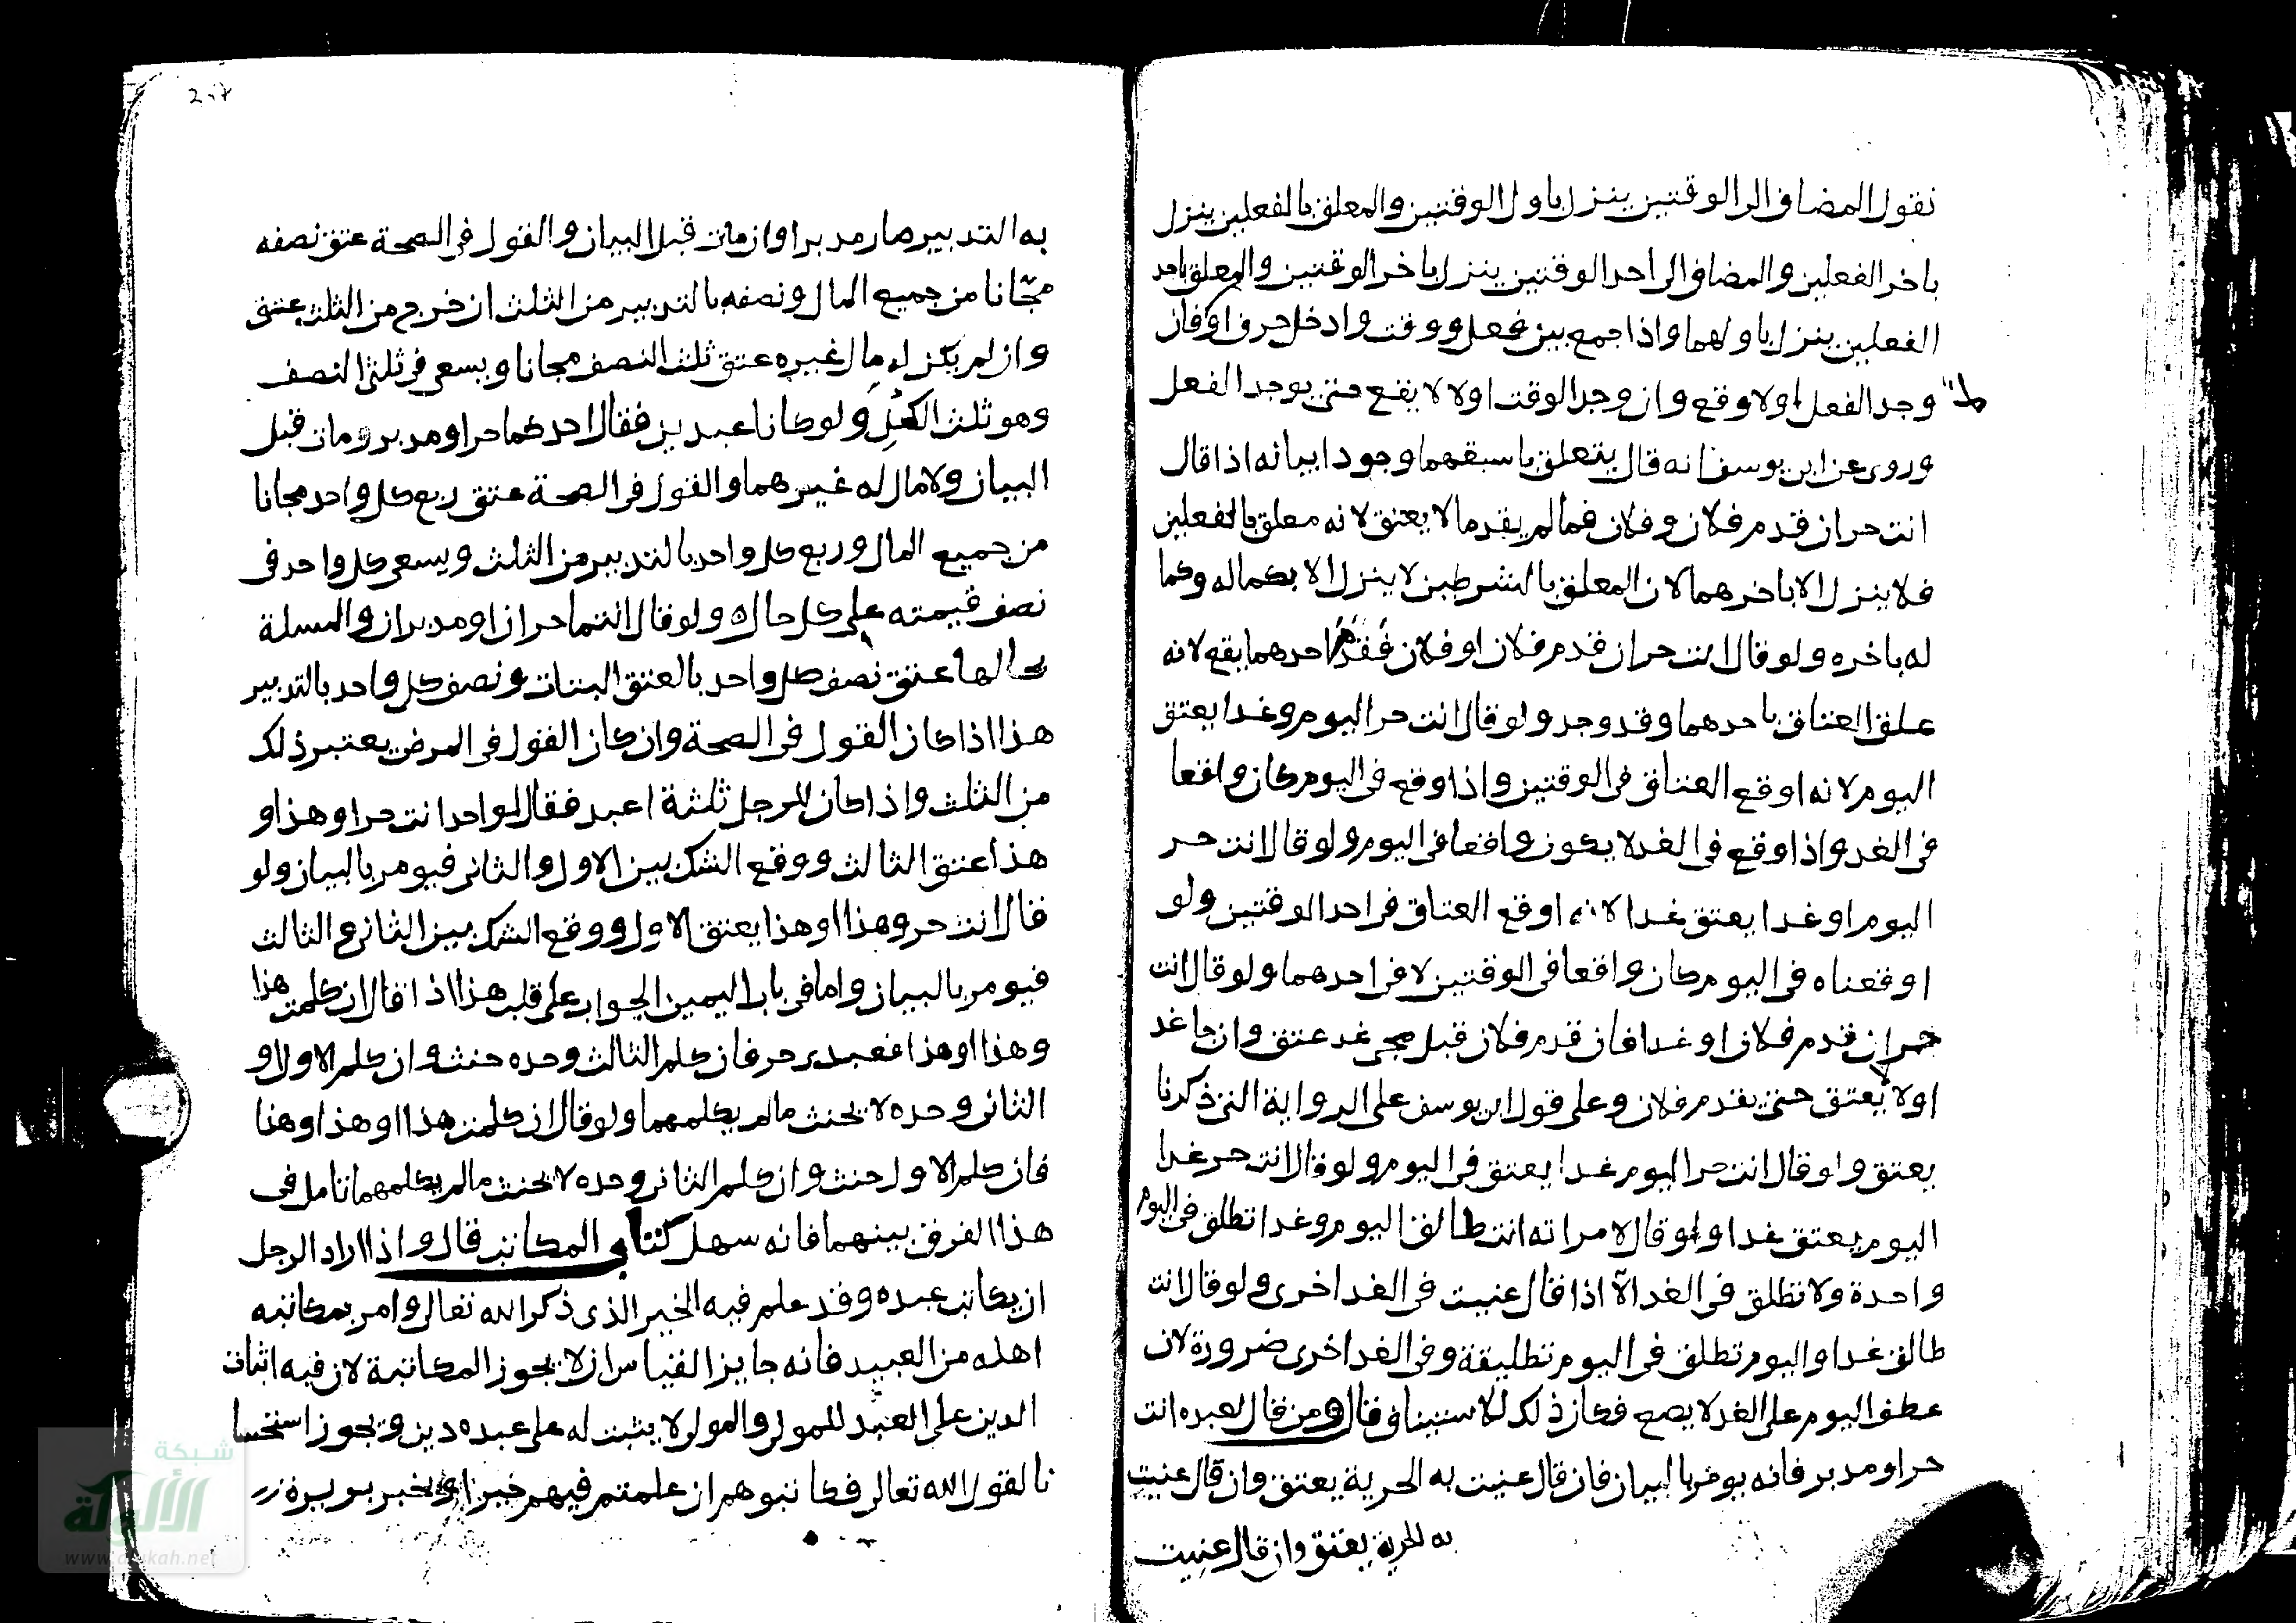 نقول المضاف الى الوقتين ينزل باول الوقتين والمعلق بالفعلين ينزل
باخر الفعلين والمضاف الى احد الوقتين ينزل باخر الوقتين والمعلق باحد
الفعلين ينزل باولهما واذا جمع بين فعل ووقت وادخل حرف او فان
وجد الفعل اولا وقع وان وجد الوقت اولا لا يقع حتى يوجد الفعل
وروى عن ابى يوسف انه قال يتعلق باسبقهما وجودا بيانه اذا قال
انت حر ان قدم فلان وفلان فما لم يقدما لا يعتق لانه معلق بالفعلين
فلا ينزل الا باخرهما لان المعلق بالشرطين لا ينزل الا بكماله وكما
له باخره ولو قال انت حر ان قدم فلان او فلان فقدم احدهما يقع لانه
علق العتاق باحدهما وقد وجد ولو قال انت حر اليوم وغدا يعتق
اليوم لانه اوقع العتاق فى الوقتين واذا وقع فى اليوم كان واقعا
فى الغد واذا وقع فى الغد لا يكون واقعا فى اليوم ولو قال انت حر
اليوم او غدا يعتق غدا لانه اوقع العتاق فى احد الوقتين ولو
اوقعناه فى اليوم كان واقعا فى الوقتين لا فى احدهما ولو قال انت
حر ان قدم فلان او غدا فان قدم فلان قبل مجى غد عتق وان جا غد
اولا لا يعتق حتى يقدم فلان وعلى قول ابى يوسف على الرواية التى ذكرنا
يعتق ولو قال انت حر اليوم غدا يعتق فى اليوم ولو قال انت حر غدا
اليوم يعتق غدا ولو قال لامراته انت طالق اليوم وغدا تطلق فى اليوم
واحدة ولا تطلق فى الغد الا اذا قال عنيت فى الغد اخرى ولو قال انت
طالق غدا واليوم تطلق فى اليوم تطليقة وفى الغد اخرى ضرورة لان
عطف اليوم على الغد لا يصح فكان ذلك للاستيناف قال ومن قال لعبده انت
حر او مدبر فانه يومر بالبيان فان قال عنيت به الحرية يعتق وان قال عنيت
به الحرية يعتق وان قال عنيت
به التدبير صار مدبرا وان مات قبل البيان والقول فى الصحة عتق نصفه
مجانا من جميع المال ونصفه بالتدبير من الثلث ان خرج من الثلث عتق
وان لم يكن له مال غيره عتق ثلث النصف مجانا ويسعى فى ثلثى النصف
وهو ثلث الكل ولو كانا عبدين فقال احدكما حر او مدبر ومات قبل
البيان ولا مال له غيرهما والقول فى الصحة عتق ربع كل واحد مجانا
من جميع المال وربع كل واحد بالتدبير من الثلث ويسعى كل واحد فى
نصف قيمته على كل حال ولو قال انتما حران او مدبران والمسلة
بحالها عتق نصف كل واحد بالعتق البتات ونصف كل واحد بالتدبير
هذا اذا كان القول فى الصحة وان كان القول فى المرض يعتبر ذلك
من الثلث واذا كان للرجل ثلثة اعبد فقال لواحد انت حر او هذا و
هذا عتق الثالث ووقع الشك بين الاول والثانى فيومر بالبيان ولو
قال انت حر وهذا او هذا يعتق الاول ووقع الشك بين الثانى والثالث
فيومر بالبيان واما فى باب اليمين الجواب على قلب هذا اذا قال ان كلمت هذا
وهذا او هذا فعبدى حر فان كلم الثالث وحده حنث وان كلم الاول او
الثانى وحده لا يحنث ما لم يكلمهما ولو قال ان كلمت هذا او هذا وهذا
فان كلم الاول حنث وان كلم الثانى وحده لا يحنث ما لم يكلمهما تامل فى
هذا الفرق بينهما فانه سهل كتاب المكاتب قال واذا اراد الرجل
ان يكاتب عبده وقد علم فيه الخير الذى ذكر الله تعالى وامر بمكاتبه
اهله من العبيد فانه جايز القياس ان لا يجوز المكاتبة لان فيه اثبات
الدين على العبد للمولى والمولى لا يثبت له على عبده دين ويجوز استحسا
نا لقول الله تعالى فكاتبوهم ان علمتم فيهم خيرا ولخبر بريرة
شبكة
الألوكة
www.alukah.net